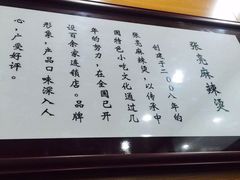 张亮麻辣烫
创建于二〇〇八年的
张亮麻辣烫，以传承中
国特色小吃文化通过几
年的努力，在全国已开
设百余家连锁店。品牌
形象，产品口味深入人
心，广受好评。